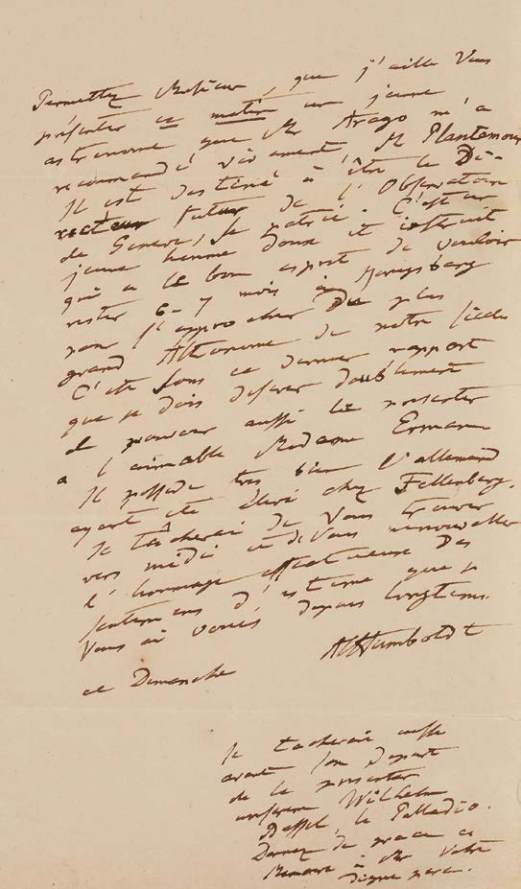 Permettez Monsieur, que j'aille Vous
présenter ce matin un jeune
astronome que Mr Arago m'a
recommandé vivement, Mr Plantamour
Il est destiné à être le Di-
recteur futur de l'Observatoire
de Geneve, sa patrie. C'est un
jeune homme doux et instruit
qui a le bon esprit de vouloir
rester 6-7 mois à Königsberg
pour s'approcher du plus
grand Astronome de notre siècle
C'est sous ce dernier rapport
que je dois desirer doublement
de pouvoir aussi le presenter
a l'aimable Madame Erman
Il possede tres bien l'allemand
ayant été élevé chez Fellenberg.
Je tâcherai de Vous trouver
vers midi et de Vous renouveller
l'hommage affectueux des
sentimens d'estime que je
Vous ai voués depuis longtems.
AlHumboldt
ce Dimanche
Je tacherai aussi
avant son depart
de le presenter
Wilhelm
Bessel, le Palladio.
Donnez de grace ce
à Mr Votre
digne pere.